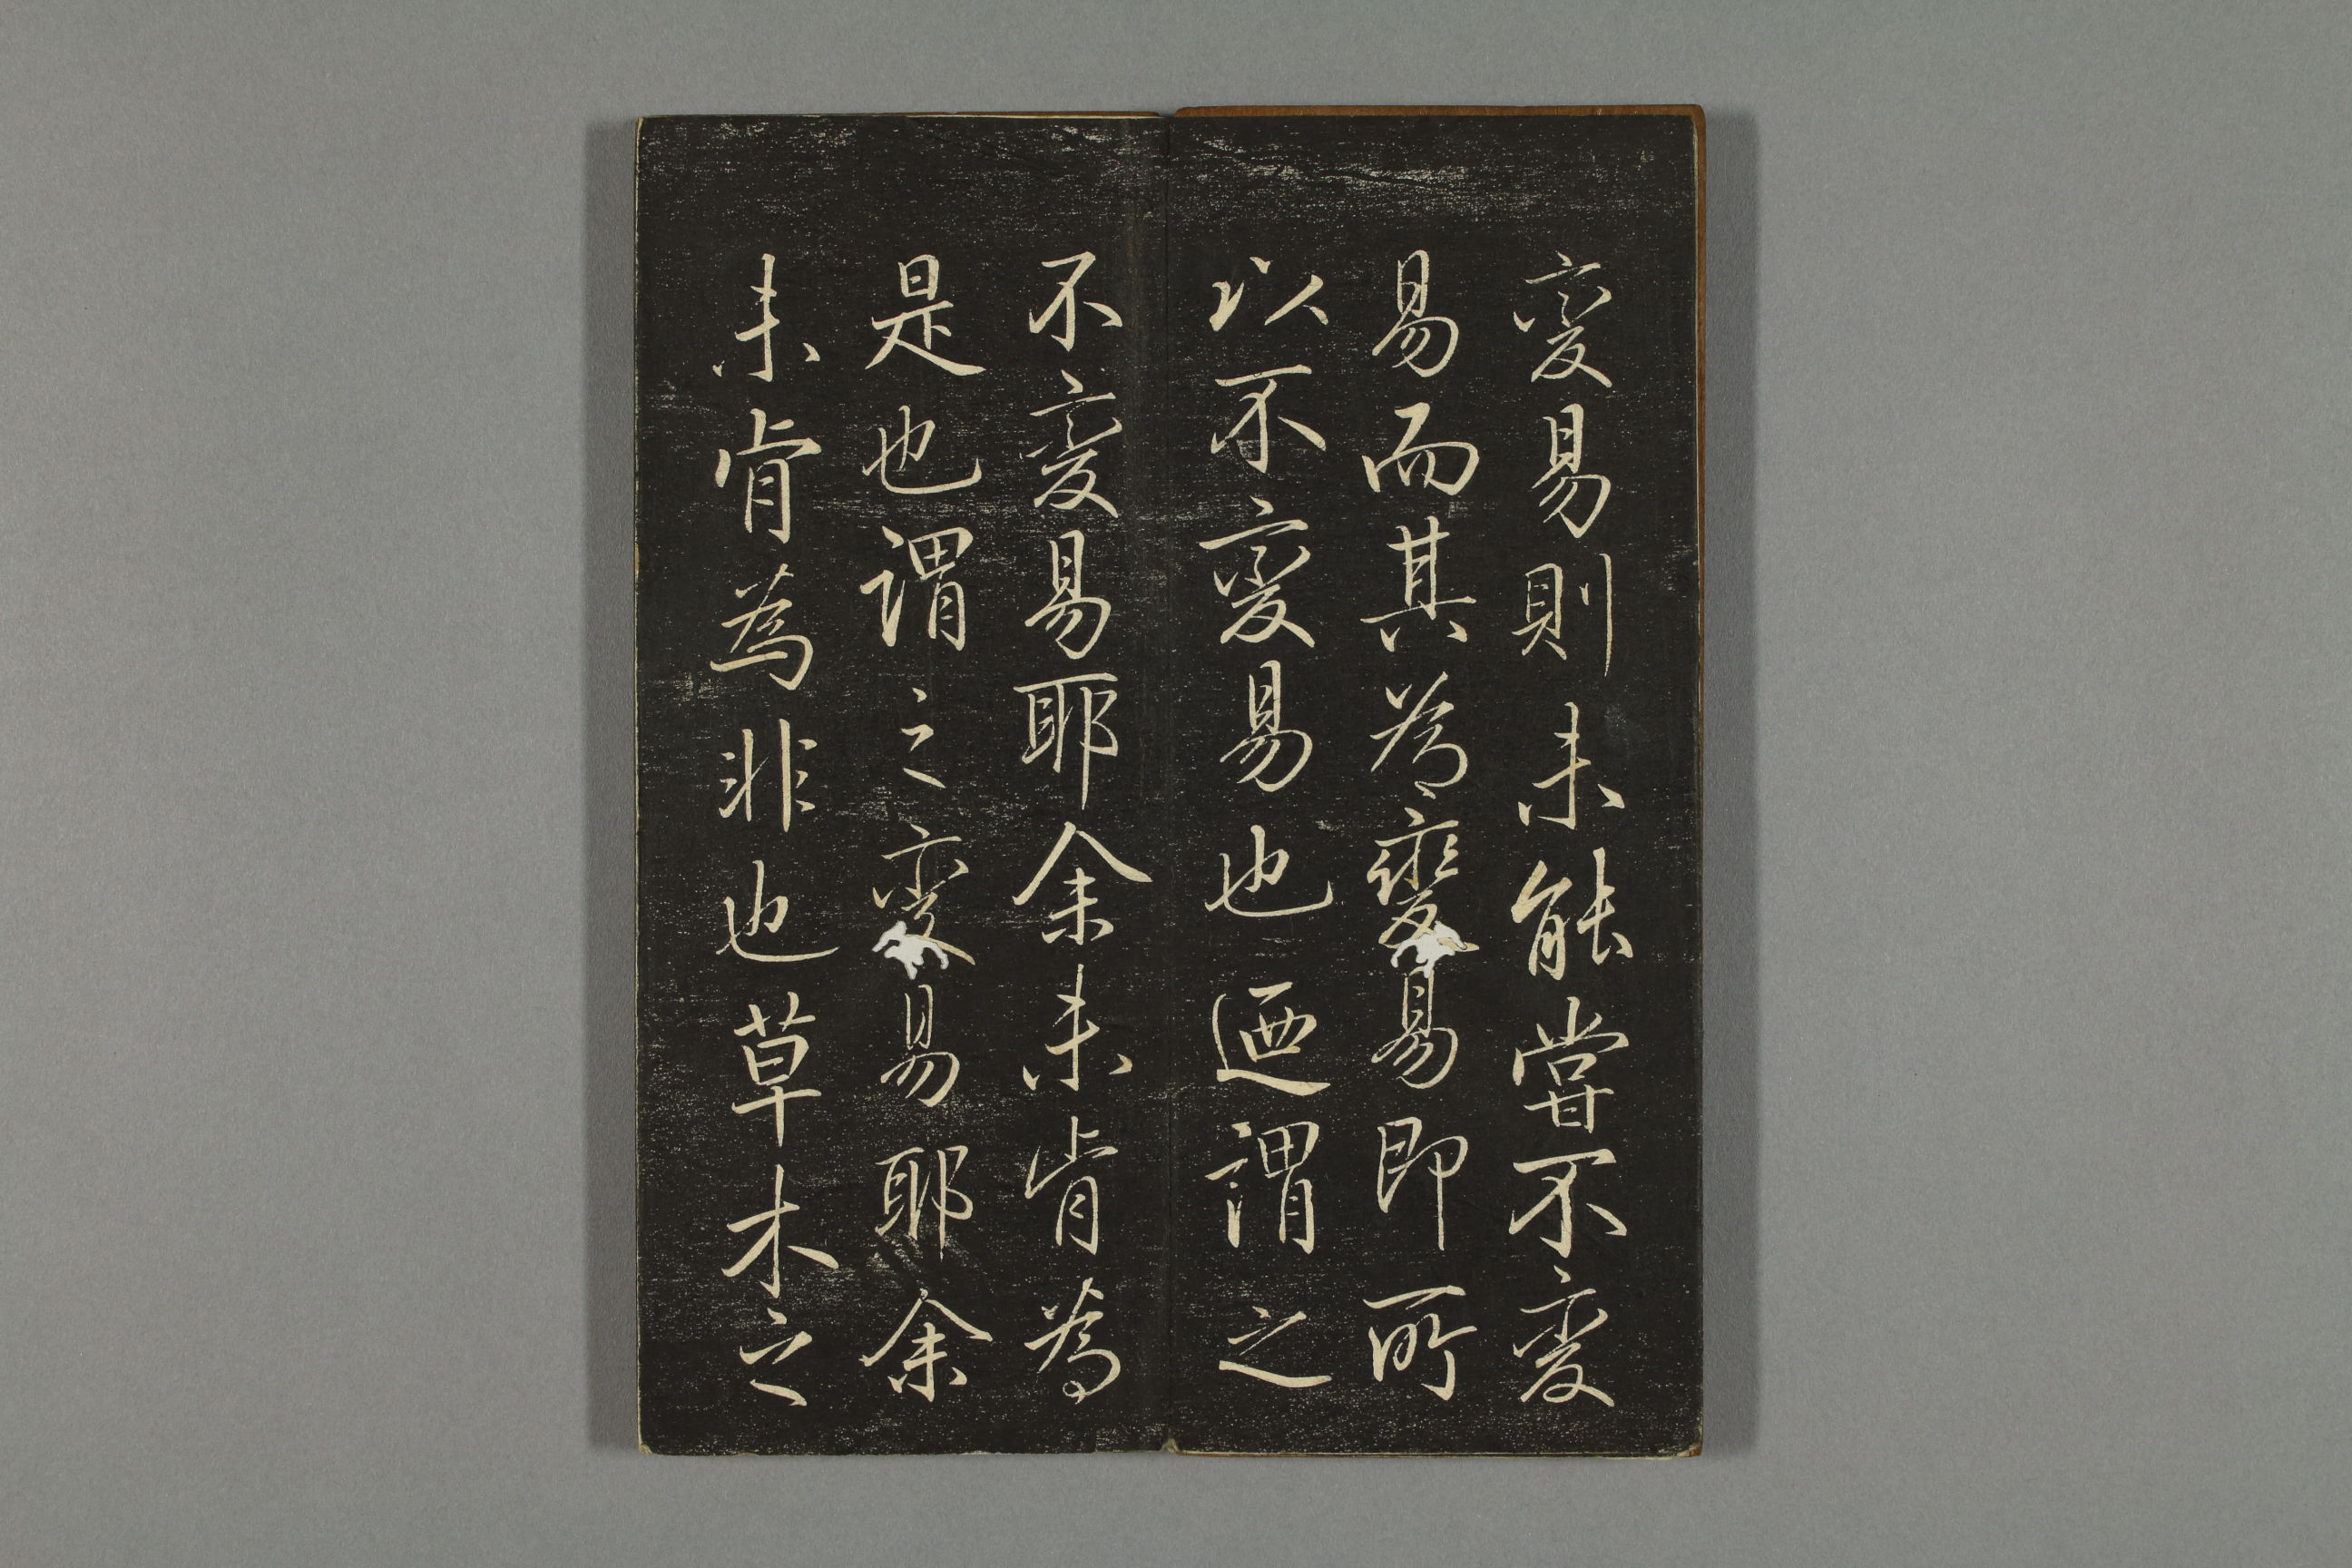 變易則未能嘗不變
易而其為變易即所
以不變易也迺謂之
不變易耶余未肯為
是也謂之變易耶余
未肯為非也草木之